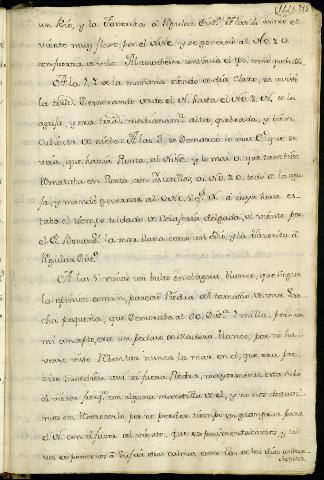 un Rio, y la Favorita à Regular Dist.ª A las
viento muy flaxo, por el NNE, y se governò al NO. 2 O.
con fuerza de vela. Al anochecer continua el tpo. como queda dho.
A la 1½ de la mañana siendo ya dia claro, se avistò
la tierra Demorando desde el N. hasta el NO. 3. N. de la
aguja, y era tierra medianam.te alta, quebrada, y bien
cubierta de nieve: A las 3, se Demarcò lo mas E. que se
veìa, que hacìa Punta, al NNE. y lo mas O. que tambien
Remataba en Punta, con Ysletillas, al NO. 2 O. todo de la agu-
ja, y mandè governar al NO. 5 g.s N. a cuya hora es-
taba el tiempo toldado de Celajeria delgada, el viento por
el E. Bonancible la mar llana como un Rio, y la Favorita à
Regular Dist.ª
A las 5 vimos un bulto en el agua, blanco, que segun
la opinion comun, parecia Piedra del tamaño de una Lan-
cha pequeña, que Demoraba al SO. Dist.ª 1 milla, pero en
mi concepto, era un pedazo de Madera blanco, por no ha-
verse visto Rebentar nunca la mar en el, que era pre-
ciso sucediera asi si fuera Piedra, mayormente estando
el viento fresq.to con alguna maretilla de el, y no nos detuvi-
mos en Reconocerlo, por no perder tiempo en grangear para
el N. con el favor del viento, que experimentabamos, y tal
vez exponernos à sufrir otras calmas como las de los dias antece-
dentes.